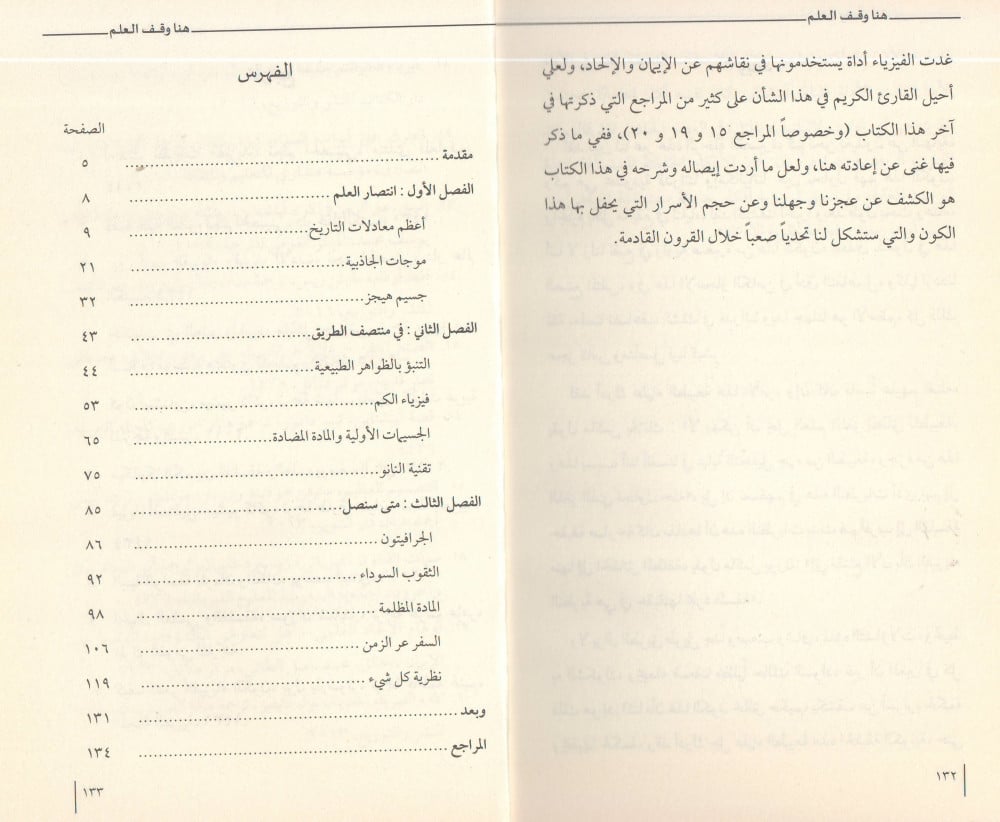 هنا وقف العلم
غدت الفيزياء أداة يستخدمونها في نقاشهم عن الإيمان والإلحاد، ولعلي
أحيل القارئ الكريم في هذا الشأن على كثير من المراجع التي ذكرتها في
آخر هذا الكتاب (وخصوصاً المراجع ١٥ و ١٩ و ٢٠)، ففي ما ذكر
فيها غنى عن إعادته هنا، ولعل ما أردت إيصاله وشرحه في هذا الكتاب
هو الكشف عن عجزنا وجهلنا وعن حجم الأسرار التي يحفل بها هذا
الكون والتي ستشكل لنا تحدياً صعباً خلال القرون القادمة.
١٣٢
هنا وقف العلم
الفهرس
الصفحة
مقدمة ................ ٥
الفصل الأول : انتصار العلم ................ ٨
أعظم معادلات التاريخ ................ ٩
موجات الجاذبية ................ ٢١
جسيم هيجز ................ ٣٢
الفصل الثاني : في منتصف الطريق ................ ٤٣
التنبؤ بالظواهر الطبيعية ................ ٤٤
فيزياء الكم ................ ٥٣
الجسيمات الأولية والمادة المضادة ................ ٦٥
تقنية النانو ................ ٧٥
الفصل الثالث : متى سنصل ................ ٨٥
الجرافيتون ................ ٨٦
الثقوب السوداء ................ ٩٢
المادة المظلمة ................ ٩٨
السفر عر الزمن ................ ١٠٦
نظرية كل شيء ................ ١١٩
وبعد ................ ١٣١
المراجع ................ ١٣٤
١٣٣